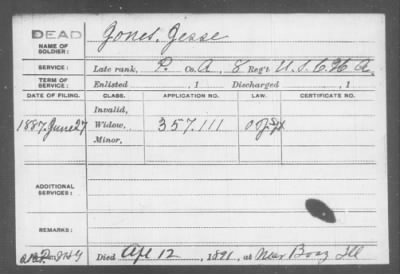 DEAD
NAME OF SOLDIER: Jones, Jesse
SERVICE: Late rank, P. Co. A, 8 Reg't U.S.C.H.A.
TERM OF SERVICE: Enlisted , 1 Discharged , 1
DATE OF FILING. CLASS. APPLICATION NO. LAW. CERTIFICATE NO.
Invalid,
1887. June 27 Widow, 357.111
Minor,
ADDITIONAL SERVICES:
REMARKS:
Died Apl 12, 1891, at Near Boaz Ill